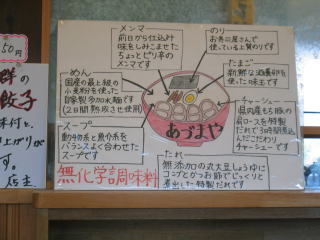 メンマ
前日から仕込み
味をしみこませた
ちょっとピリ辛の
メンマです
のり
お弁当屋さんで
使っている上質のりです
めん
国産の最上級の
小麦粉を使った
自家製多加水麺です
(2日間熟成させ使用)
たまご
新鮮な
を使った味玉です
あづまや
チャーシュー
県内産もち豚の
肩ロースを特製
だれで3時間煮込ん
だこだわり
チャーシューです
スープ
動物系と魚介系を
バランスよく合わせた
スープです
たれ
無添加の丸大豆しょうゆに
コンブとかつお節でじっくりと
煮出した特製だれです
無化学調味料
50円
餃子
味付と、
上がりが
す。
店主